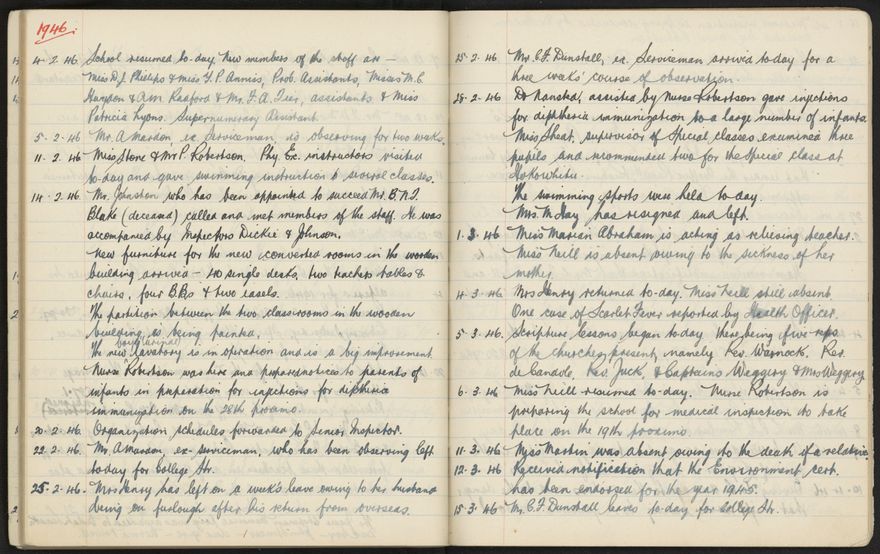 1946.
4. 2. 46. School resumed to-day. New members of the staff are —
Miss D.J. Phillips & Miss Y. P. Annis, Prob. Assistants, Misses M. C.
Haydon & A.M. Radford & Mr. F. A. Tier, assistants & Miss
Patricia Lyons. Supernumerary Assistant.
5. 2. 46 Mr. A Mardon, ex Serviceman, is observing for two weeks.
11. 2. 46. Miss Stone & Mr P. Robertson. Phy. Ex. instructors visited
to-day and gave swimming instruction to several classes.
14. 2. 46. Mr. Johnston who has been appointed to succeed Mr. B. N. T.
Blake (deceased) called and met members of the staff. He was
accompanied by Inspectors Dickie & Johnson.
New furniture for the new converted rooms in the wooden
building arrived — 40 single desks, two teacher tables &
chairs, four B.Bs & two easels.
The partition between the two classrooms in the wooden
building is being painted.
The new boys (urinal) lavatory is in operation and is a big improvement.
Nurse Robertson was here and prepared notices to parents of
infants in preparation for injections for diphtheria
immunization on the 28th proximo.
20. 2. 46. Organization schedules forwarded to Senior Inspector.
22. 2. 46. Mr. A Marsdon, ex-serviceman, who has been observing left
to-day for College Str.
25. 2. 46. Mrs Henry has left on a week's leave owing to her husband
being on furlough after his return from overseas.
25. 2. 46 Mr. C. F. Dunstall, ex. Serviceman arrived to-day for a
three weeks' course of observation.
28. 2. 46 Dr Hansted, assisted by Nurse Robertson gave injections
for diphtheria immunization to a large number of infants.
Miss Sheat, supervisor of Special classes examined three
pupils and recommended two for the Special class at
Hokowhitu.
The swimming sports were held to-day.
Mrs. M. Hay has resigned and left.
1. 3. 46 Miss Marian Abraham is acting as relieving teacher.
Miss Neill is absent owing to the sickness of her
mother.
4. 3. 46 Mrs Henry returned to-day. Miss Neill still absent.
One case of Scarlet Fever reported by Health Officer.
5. 3. 46. Scripture lessons began to-day there being five reps
of the churches present, namely Rev. Warnock, Rev.
de Candole, Rev. Juck, & Captains Weggery & Mrs Weggery
6. 3. 46 Miss Neill resumed to-day. Nurse Robertson is
preparing the school for medical inspection to take
place on the 19th proximo.
11. 3. 46 Miss Martin was absent owing to the death of a relative
12. 3. 46 Received notification that the Environment cert.
has been endorsed for the year 1945.
15. 3. 46 Mr. C. F. Dunstall leaves to-day for College Str.